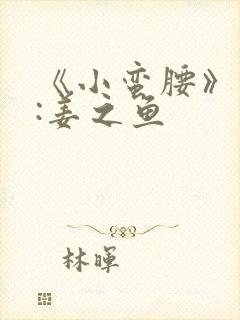 《小蛮腰》
:姜之鱼
林晖